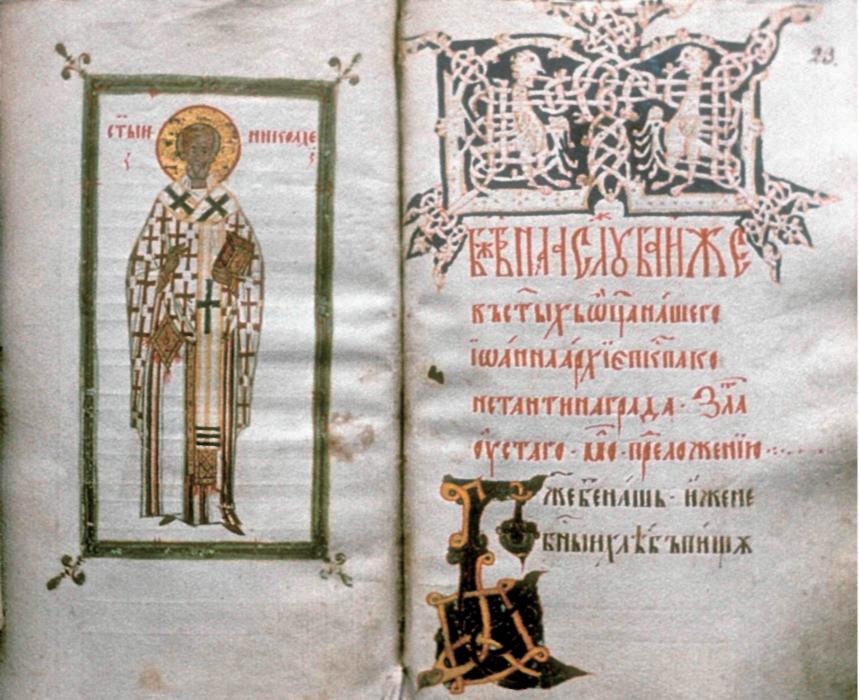 ст҃ыи николае
23.
бж҃твнаа слоуба иже
въ ст҃ыхь ѡц҃а на́шего
іѡа́нна а́рхїепⷭ҇кпа ко
нстантинаграда · Зла
оу́стаго · по прⷣложенїю
Бж҃е бе на́шь · и́же не
бⷭ҇ныи хлѣбъ пищѫ